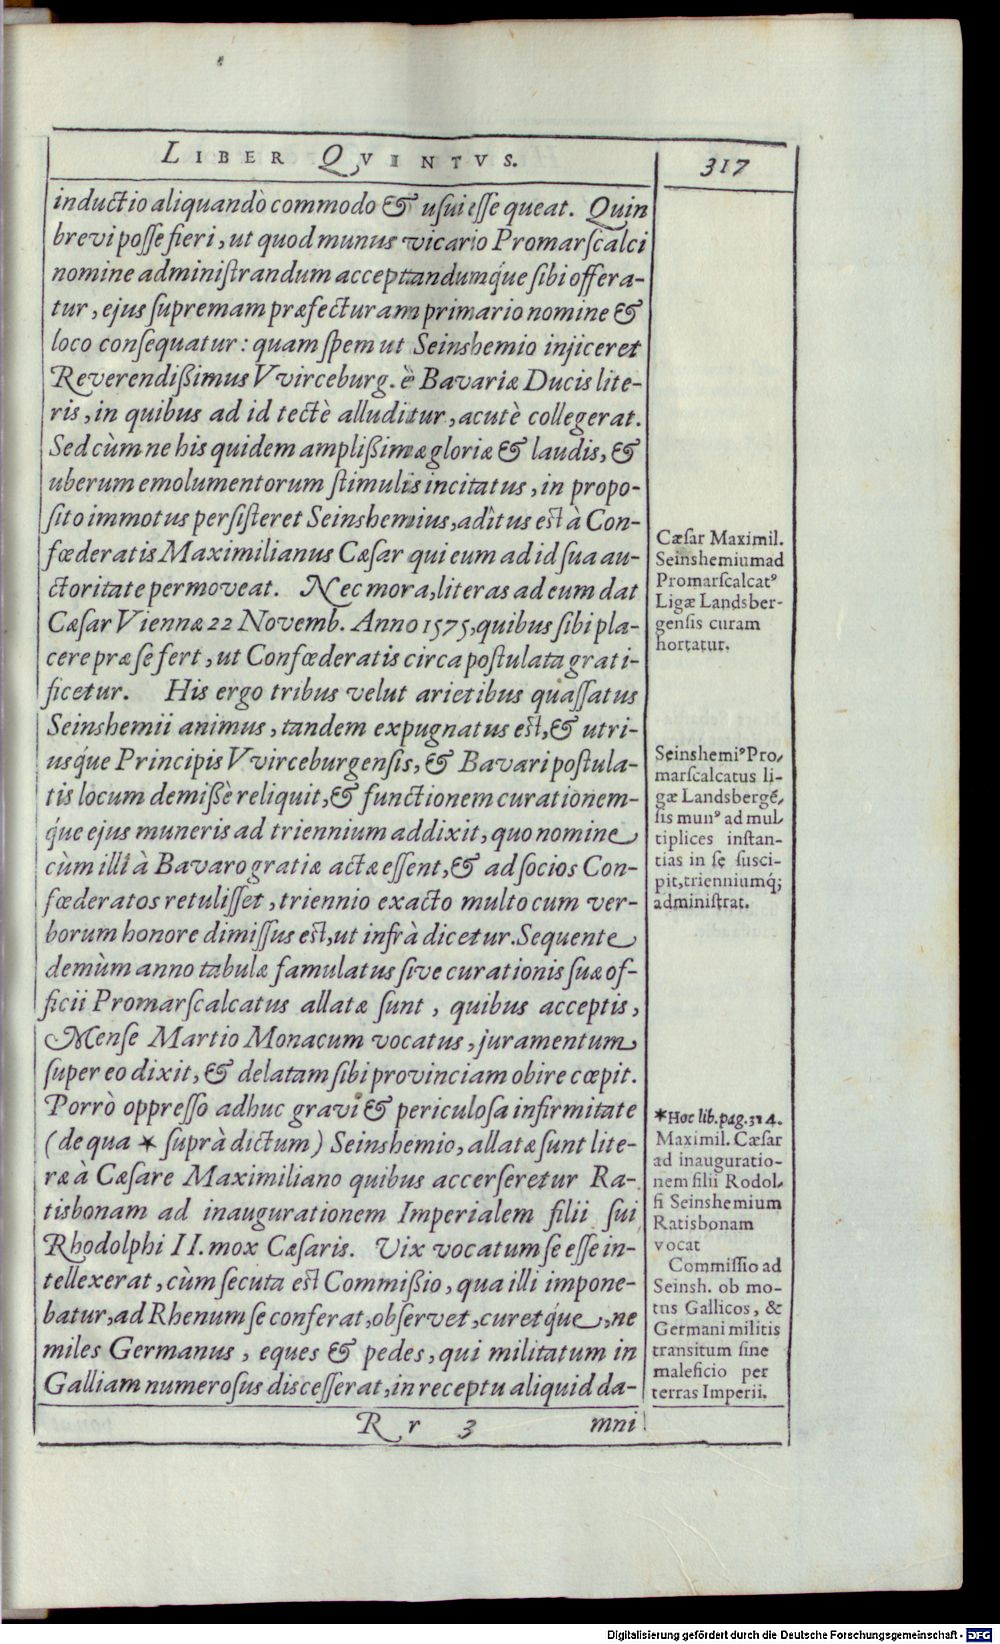 LIBER QVINTVS.
317
inductio aliquandò commodo & usui esse queat. Quin
brevi posse fieri, ut quod munus vicario Promarscalci
nomine administrandum acceptandumq́ue sibi offera-
tur, ejus supremam præfecturam primario nomine &
loco consequatur: quam spem ut Seinshemio injiceret
Reverendißimus VVirceburg. è Bavariæ Ducis lite-
ris, in quibus ad id tectè alluditur, acutè collegerat.
Sed cùm ne his quidem amplißimæ gloriæ & laudis, &
uberum emolumentorum stimulis incitatus, in propo-
sito immotus persisteret Seinshemius, aditus est à Con-
fœderatis Maximilianus Cæsar qui eum ad id sua au-
ctoritate permoveat. Nec mora, literas ad eum dat
Cæsar Viennæ 22 Novemb. Anno 1575, quibus sibi pla-
cere præ se fert, ut Confœderatis circa postulata grati-
ficetur. His ergo tribus velut arietibus quassatus
Seinshemii animus, tandem expugnatus est, & utri-
usq́ue Principis VVirceburgensis, & Bavari postula-
tis locum demißè reliquit, & functionem curationem-
q́ue ejus muneris ad triennium addixit, quo nomine
cùm illi à Bavaro gratiæ actæ essent, & ad socios Con-
fœderatos retulisset, triennio exacto multo cum ver-
borum honore dimissus est, ut infrà dicetur. Sequente
demùm anno tabulæ famulatus sive curationis suæ of-
ficii Promarscalcatus allatæ sunt, quibus acceptis,
Mense Martio Monacum vocatus, juramentum
super eo dixit, & delatam sibi provinciam obire cœpit.
Porrò oppresso adhuc gravi & periculosa infirmitate
(de qua * suprà dictum) Seinshemio, allatæ sunt lite-
ræ à Cæsare Maximiliano quibus accerseretur Ra-
tisbonam ad inaugurationem Imperialem filii sui
Rhodolphi II. mox Cæsaris. Vix vocatum se esse in-
tellexerat, cùm secuta est Commißio, qua illi impone-
batur, ad Rhenum se conferat, observet, curetq́ue, ne
miles Germanus, eques & pedes, qui militatum in
Galliam numerosus discesserat, in receptu aliquid da-
Rr 3
mni
Cæsar Maximil.
Seinshemium ad
Promarscalcatꝰ
Ligæ Landsber-
gensis curam
hortatur.
Seinshemiꝰ Pro-
marscalcatus li-
gæ Landsbergē-
sis munꝰ ad mul-
tiplices instan-
tias in se susci-
pit, trienniumq́;
administrat.
*Hoc lib. pag. 314.
Maximil. Cæsar
ad inauguratio-
nem filii Rodol-
fi Seinshemium
Ratisbonam
vocat
Commissio ad
Seinsh. ob mo-
tus Gallicos, &
Germani militis
transitum sine
maleficio per
terras Imperii.
Digitalisierung gefördert durch die Deutsche Forschungsgemeinschaft - DFG